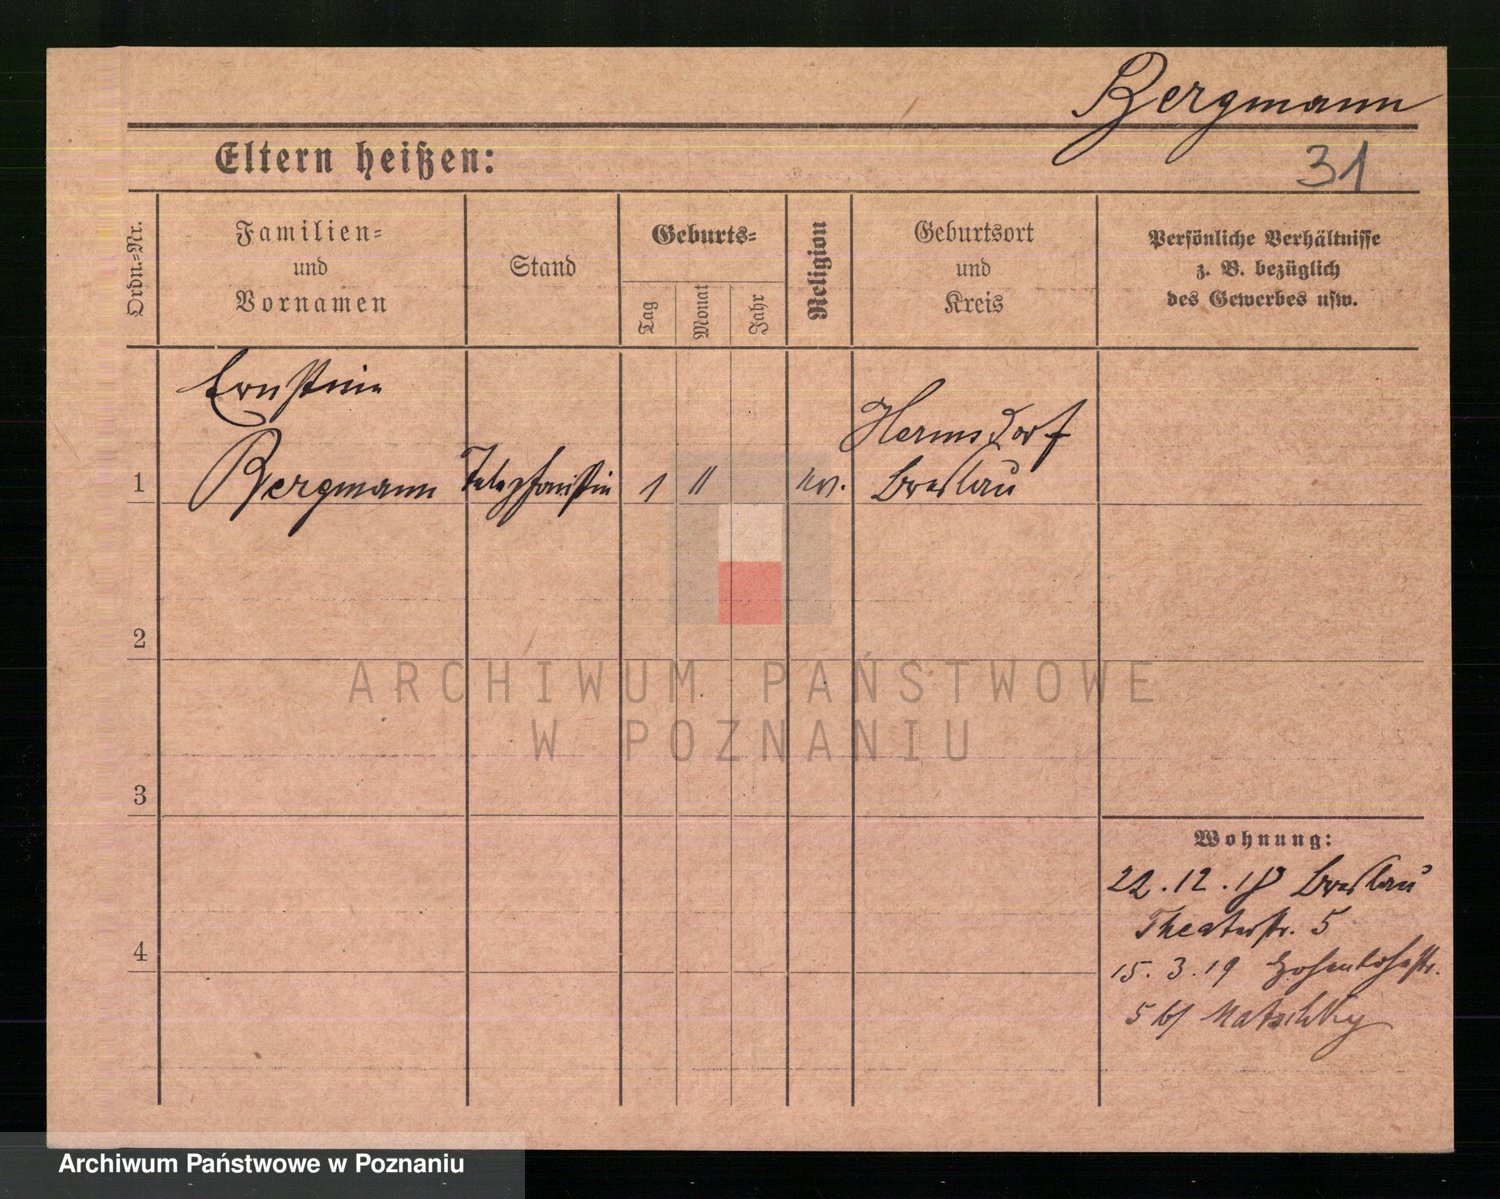 Bergmann
Eltern heißen:
31
Ordn.-Nr.
Familien-
und
Vornamen
Stand
Geburts-
Tag
Monat
Jahr
Religion
Geburtsort
und
Kreis
Persönliche Verhältnisse
z. B. bezüglich
des Gewerbes usw.
Ernstine
Hermsdorf
1 Bergmann Telephonistin 1 11 ev. Breslau
2
ARCHIWUM PAŃSTWOWE
W POZNANIU
3
Wohnung:
22.12.18 Breslau
Theaterstr. 5
4
15.3.19 Hohenlohestr.
5 b/ Matschky
Archiwum Państwowe w Poznaniu